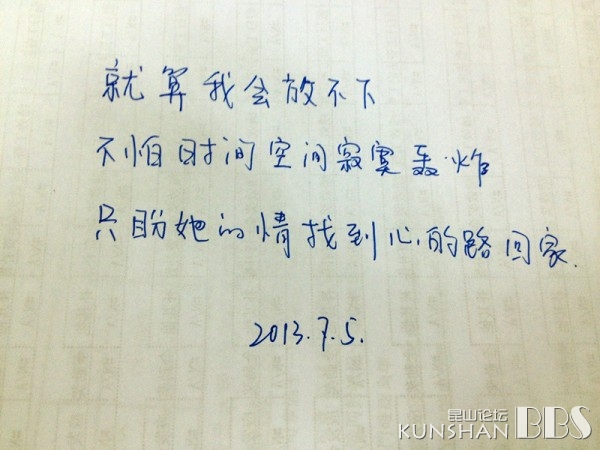 就算我会放不下
不怕时间空间寂寞轰炸
只盼她的情找到心的路回家.
2013.7.5.
昆山论坛
KUNSHAN BBS